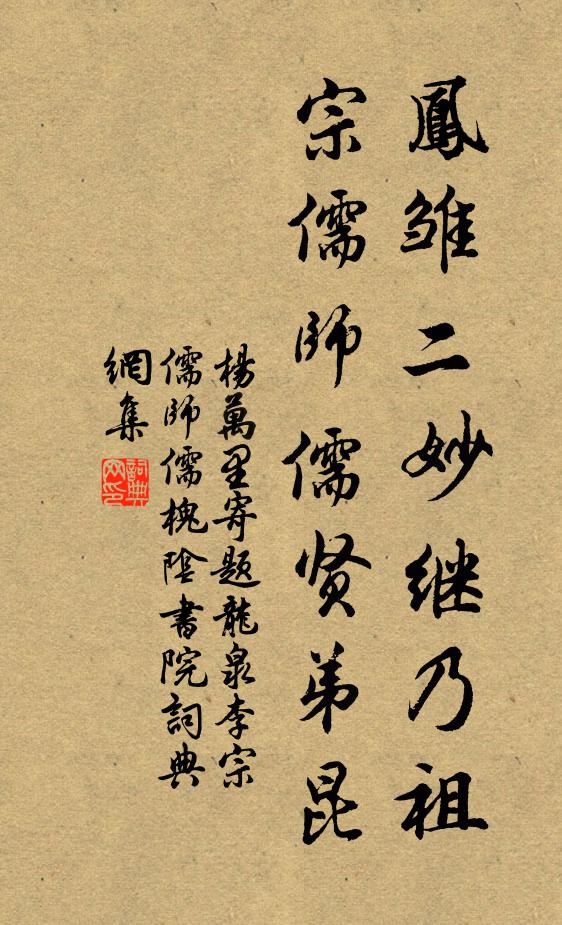 鳳雏二妙继乃祖
宗儒師儒贤弟昆
楊萬里寄題龍泉李宗
儒師儒槐陰書院詞典
網集
詞典網印